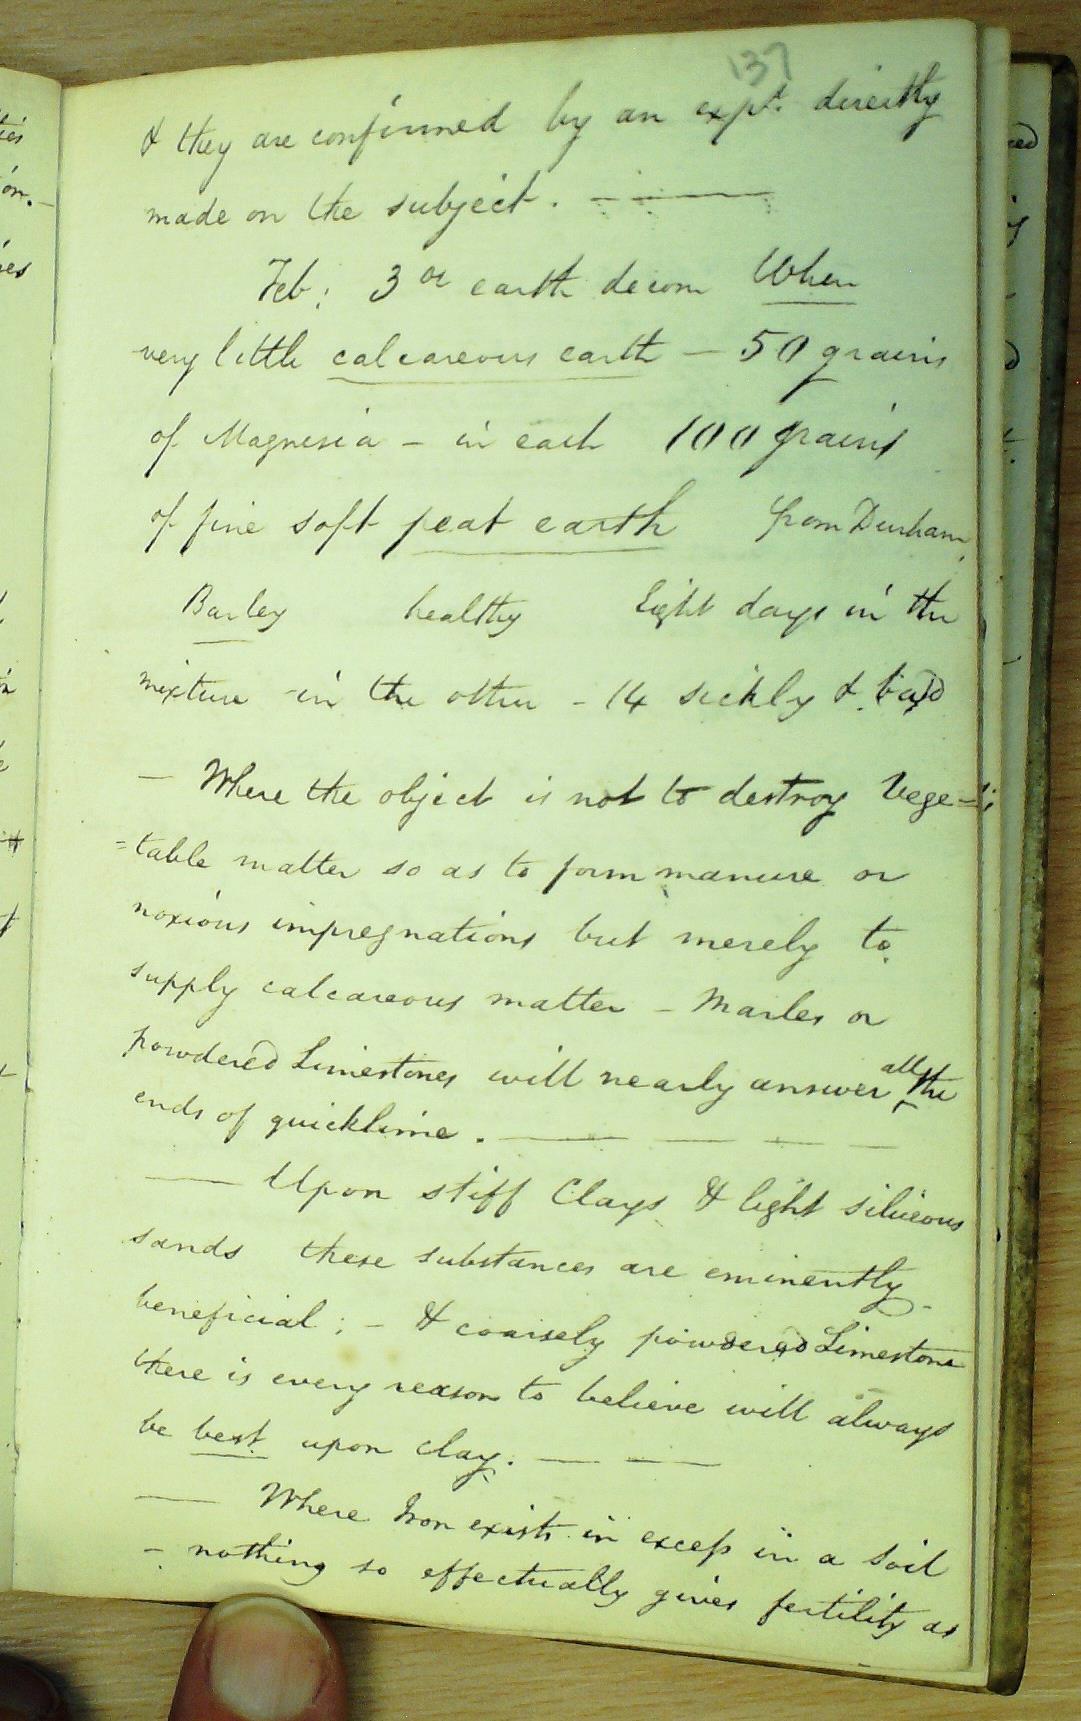 137
& they are confirmed by an expt. directly
made on the subject. — —
Feb: 3 or earth decom When
very little calcareous earth — 50 grains
of Magnesia – in each 100 grains
of fine soft peat earth from Durham.
Barley healthy Eight days in the
mixture in the other – 14 sickly & bad
— Where the object is not to destroy Vege-
=table matter so as to form manure or
noxious impregnations but merely to
supply calcareous matter – Marles or
powdered Limestones will nearly answer all the
ends of quicklime. — — — —
— Upon stiff Clays & light siliceous
sands these substances are eminently
beneficial; – & coarsely powdered Limestone
there is every reason to believe will always
be best upon clay. — —
— Where Iron exists in excess in a soil
– nothing so effectually gives fertility as